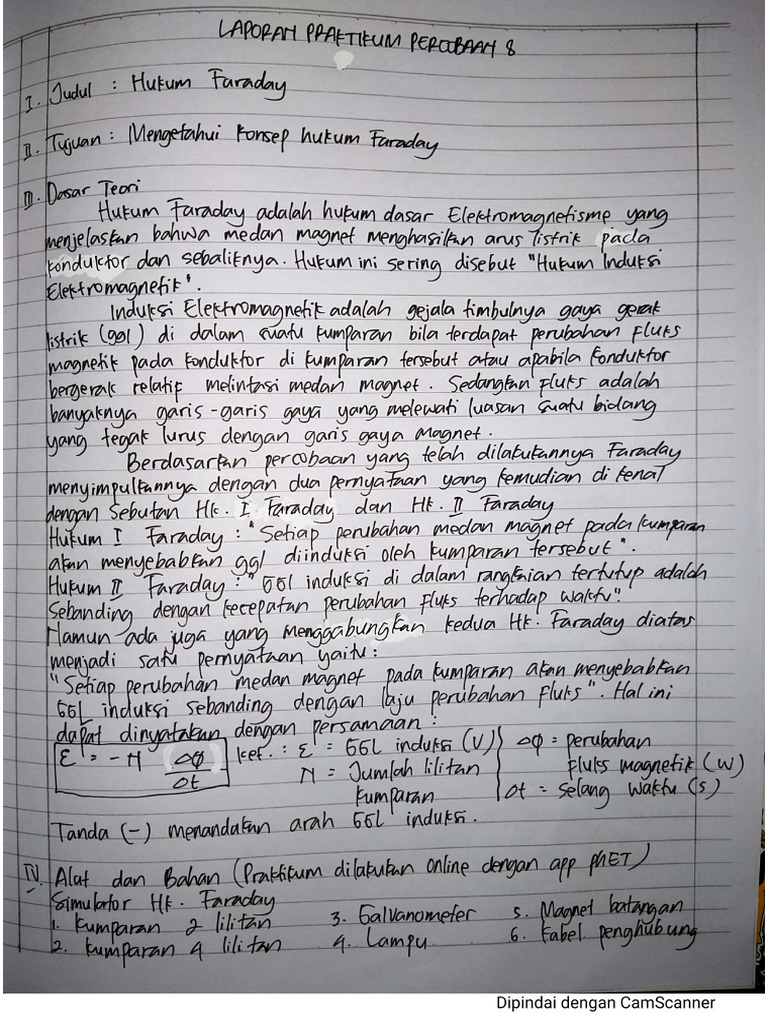 LAPORAN PRAKTIKUM PERCOBAAN 8
I. Judul : Hukum Faraday
II. Tujuan : Mengetahui konsep hukum Faraday
III. Dasar Teori
Hukum Faraday adalah hukum dasar Elektromagnetisme yang
menjelaskan bahwa medan magnet menghasilkan arus listrik pada
konduktor dan sebaliknya. Hukum ini sering disebut "Hukum Induksi
Elektromagnetik".
Induksi Elektromagnetik adalah gejala timbulnya gaya gerak
listrik (ggl) di dalam suatu kumparan bila terdapat perubahan fluks
magnetik pada konduktor di kumparan tersebut atau apabila konduktor
bergerak relatif melintasi medan magnet. Sedangkan fluks adalah
banyaknya garis-garis gaya yang melewati luasan suatu bidang
yang tegak lurus dengan garis gaya magnet.
Berdasarkan percobaan yang telah dilakukannya Faraday
menyimpulkannya dengan dua pernyataan yang kemudian di kenal
dengan sebutan Hk. I Faraday dan Hk. II Faraday
Hukum I Faraday : "Setiap perubahan medan magnet pada kumparan
akan menyebabkan ggl diinduksi oleh kumparan tersebut".
Hukum II Faraday : "GGL induksi di dalam rangkaian tertutup adalah
Sebanding dengan kecepatan perubahan fluks terhadap waktu"
Namun ada juga yang menggabungkan kedua Hk. Faraday diatas
menjadi satu pernyataan yaitu :
"Setiap perubahan medan magnet pada kumparan akan menyebabkan
GGL induksi sebanding dengan laju perubahan fluks". Hal ini
dapat dinyatakan dengan persamaan :
ε = -N Δφ/Δt ket. : ε = GGL induksi (V) Δφ = perubahan
N = Jumlah lilitan fluks magnetik (W)
kumparan Δt = selang waktu (s)
Tanda (-) menandakan arah GGL induksi.
IV. Alat dan Bahan (Praktikum dilakukan online dengan app phET)
Simulator Hk. Faraday
1. Kumparan 2 lilitan 3. Galvanometer 5. Magnet batangan
2. kumparan 4 lilitan 4. Lampu 6. Kabel penghubung
Dipindai dengan CamScanner